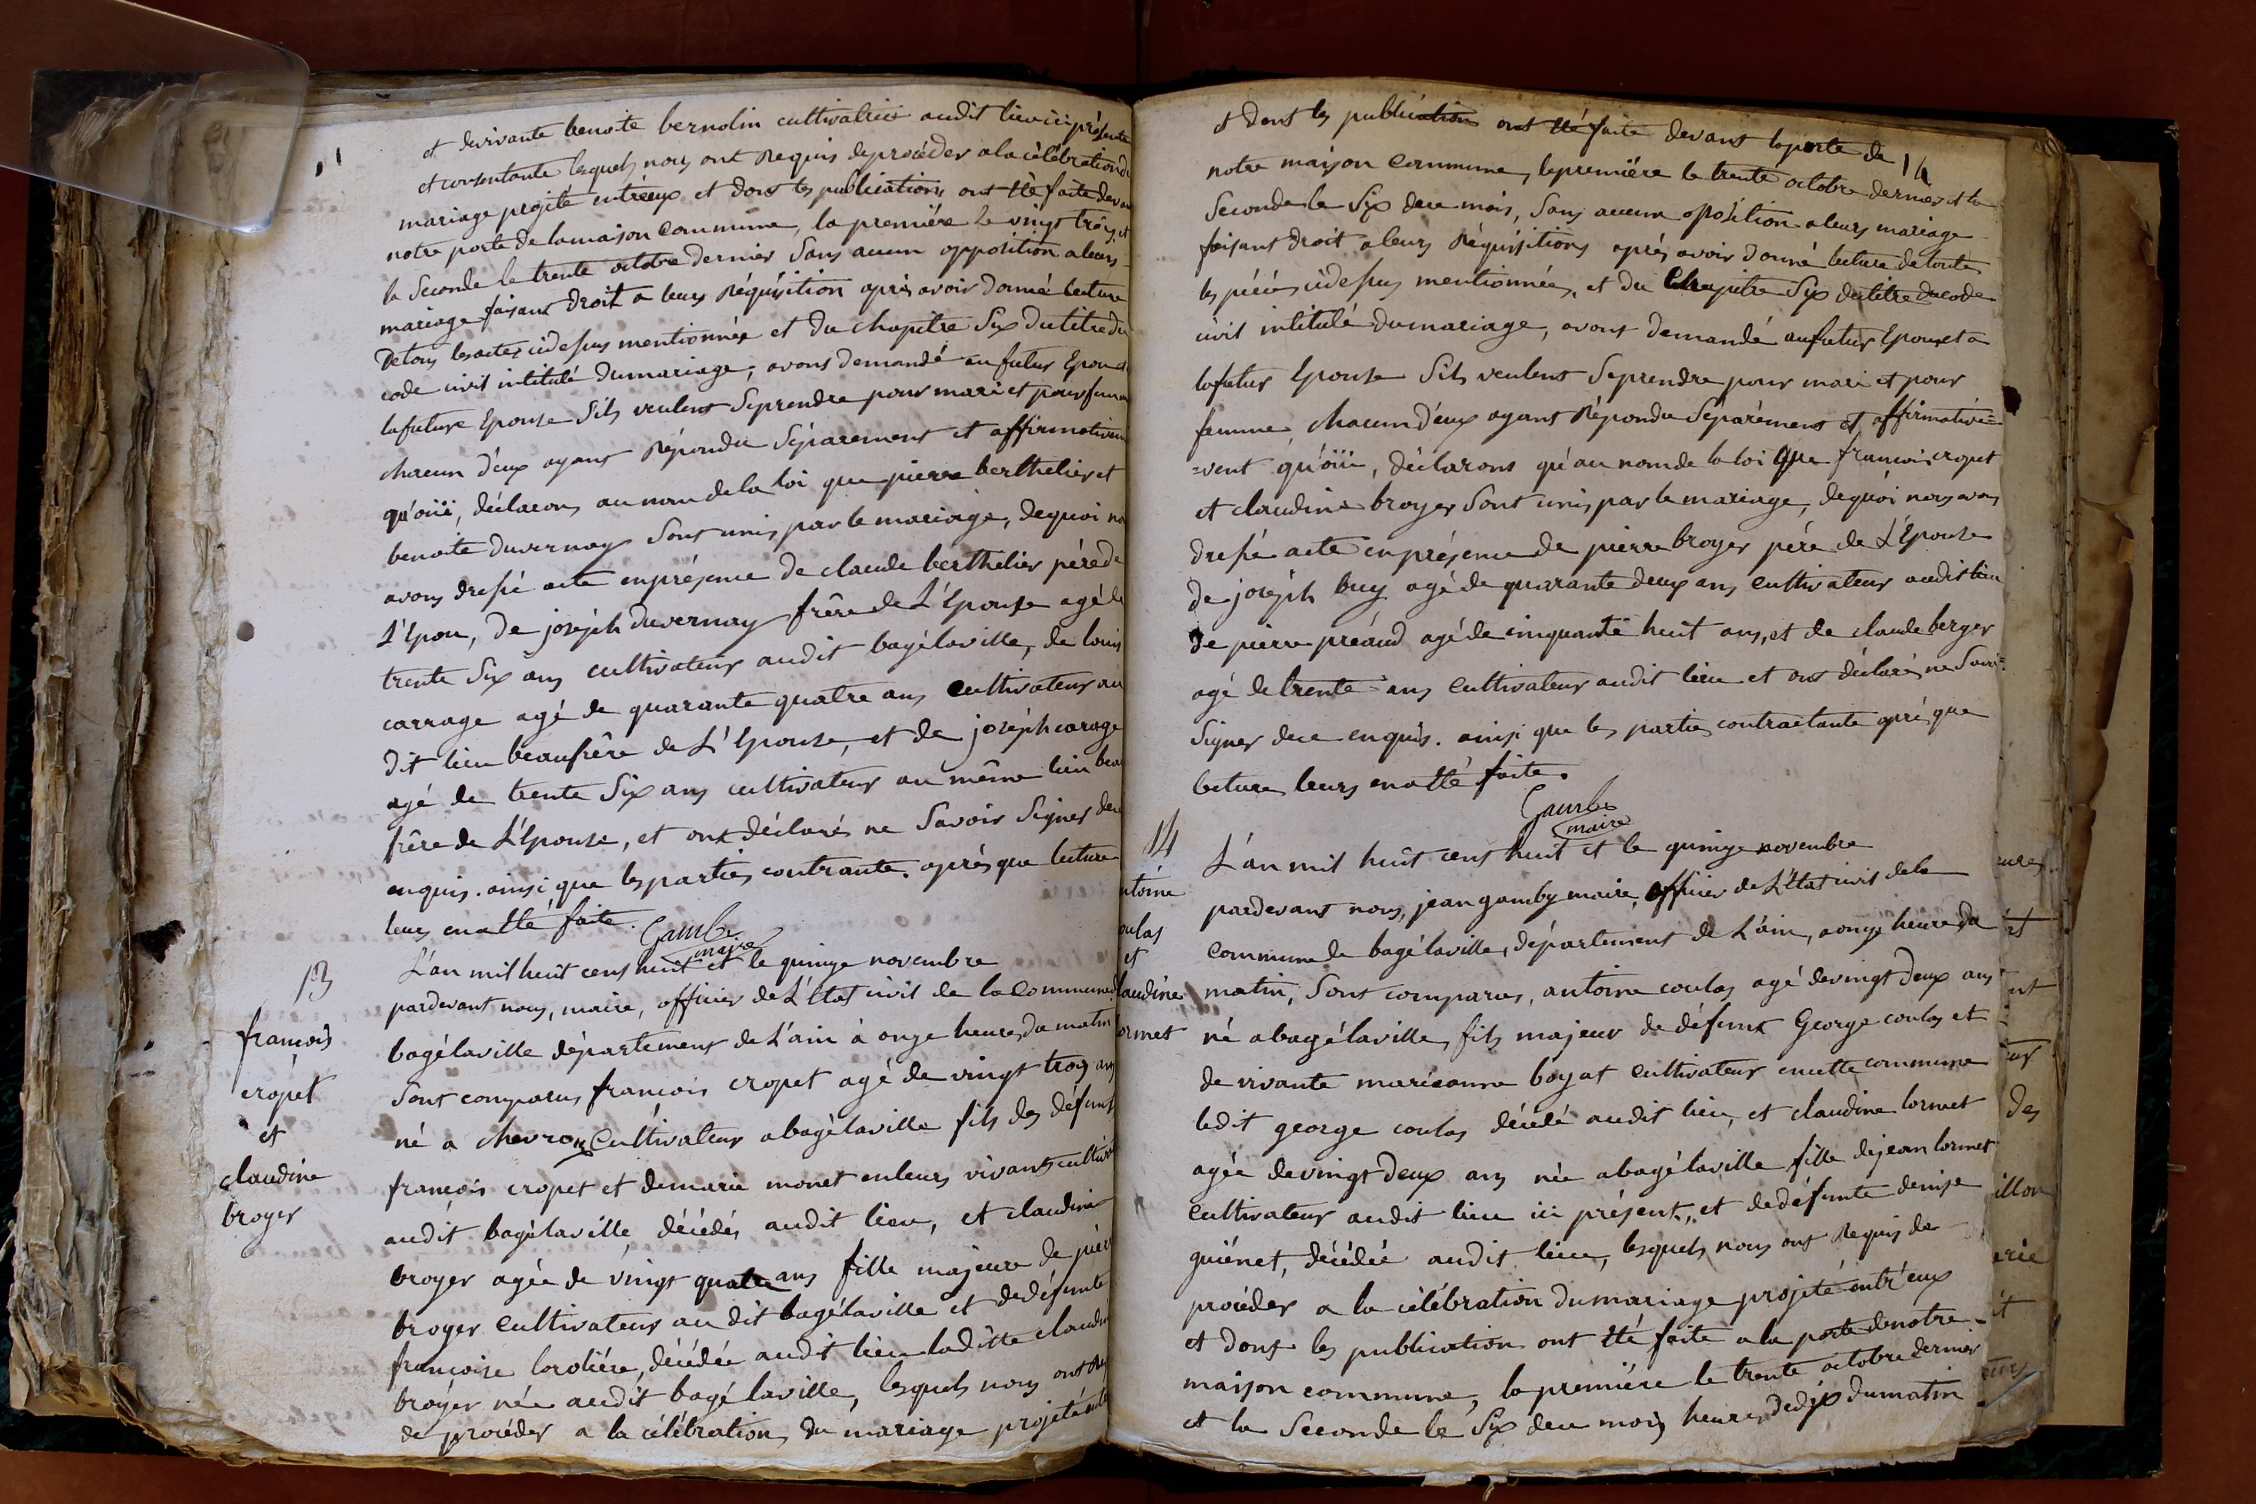 et de vivante benoite bernolin cultivatrice audit lieu ici présente
et consentante lesquels nous ont Requis de procéder a la célébration du
mariage projité entréeux et dont les publications ont été faite devant
notre porte de la maison Commune, la première le vingt trois et
la Seconde le trente octobre dernier Sans aucun opposition a leurs
mariage faisant droit a leurs Réquisition après avoir donné lecture
De tous les actes cidessus mentionnée et du chapitre Six du titre du
code civil intitulé du mariage, avons demandé au futur Epoux et
la future Epouse Sils veulent Se prendre pour mari et pour femme
chacun d'eux ayant Répondu Séparement et affirmativement
qu'oüi, déclarons au nom de la loi que pierre berthelier et
benoite duvernay Sont unis par le mariage, de quoi nous
avons dressé acte en présence de claude berthelier pére de
L'Epoux, de joséph duvernay frêre de L'Epouse agé de
trente Six ans cultivateur audit bagélaville, de louis
carrage agé de quarante quatre ans Cultivateur au
dit lieu beaufrêre de L'Epouse, et de joséph carage
agé de trente Six ans cultivateur au même lieu beau
frêre de L'Epouse, et ont déclarés ne Savoir Signer de ce
enquis. ainsi que les parties contrante. après que lecture
leurs en a été faite.
Gamby
maire
13
francois
cropet
et
claudine
broyer
L'an mil huit cens huit et le quinze novembre
pardevant nous, maire, officier de L'Etat civil de la Commune de
bagélaville département de L'ain à onze heure du matin
Sont comparus francois cropet agé de vingt trois ans
né a chevroux Cultivateur a bagélaville fils des défunts
françois cropet et de marie monet en leurs vivants cultivateurs
audit bagélaville décédés audit lieu, et claudine
broyer agée de vingt quatre ans fille majeure de pierre
broyer Cultivateur audit bagélaville et de défunte
francoise loroliére, décédée audit lieu ladite claudine
broyer née audit bagé laville, lesquels nous ont Requis
de procéder a la célébration, du mariage projeté entre
14
et dont les publication ont été faite devant la porte de
notre maison Commune, la première le trente octobre dernier et la
Seconde le Six de ce mois, Sans aucun oposition a leurs mariage
faisant droit a leurs Réquisitions après avoir donné lecture de toute
les piéces cidessus mentionnées, et du Chapitre Six du titre du code
civil intitulé du mariage, avons demandé au futur Epoux et a
la futur Epouse Sils veulent Se prendre pour mari et pour
femme, chacun d'eux ayant Répondu Séparément et affirmative=
=vent qu'oüi, déclarons qu'au nom de la loi que francois cropet
et claudine broyer Sont unis par le mariage, de quoi nous avons
dressé acte en présence de pierre broyer pére de L'Epouse
de joséph buy agé de quarante deux ans cultivateur audit lieu
de pierre préaud agé de cinquante huit ans, et de claude berger
agé de trente ans Cultivateur audit lieu et ont déclaré ne Savoir
Signer de ce enquis. ainsi que les partie contractante aprè que
lecture leurs en a été faite.
Gamby
maire
14
antoine
coulas
et
claudine
lormet
L'an mil huit cens huit et le quinze novembre
pardevant nous, jean gamby maire, officier de L'Etat civil de la
Commune de bagélaville, département de L'ain, a onze heure du
matin, Sont comparus, antoine coulas agé de vingt deux ans
né a bagélaville, fils majeur de défunt George coulas et
de vivante marieanne boyat Cultivateur en cette commune
ledit george coulas décédé audit lieu, et claudine lormet
agée de vingt deux ans née a bagélaville fille de jean lormet
Cultivateur audit lieu ici présent, et de défunte denise
guiénet, décédée audit lieu, lesquels nous ont Requis de
procéder a la célébration du mariage projeté entr'eux
et dont les publication ont été faite a la porte de notre
maison commune, la première le trente octobre dernier
et la Seconde le Six de ce mois heure de dix du matin